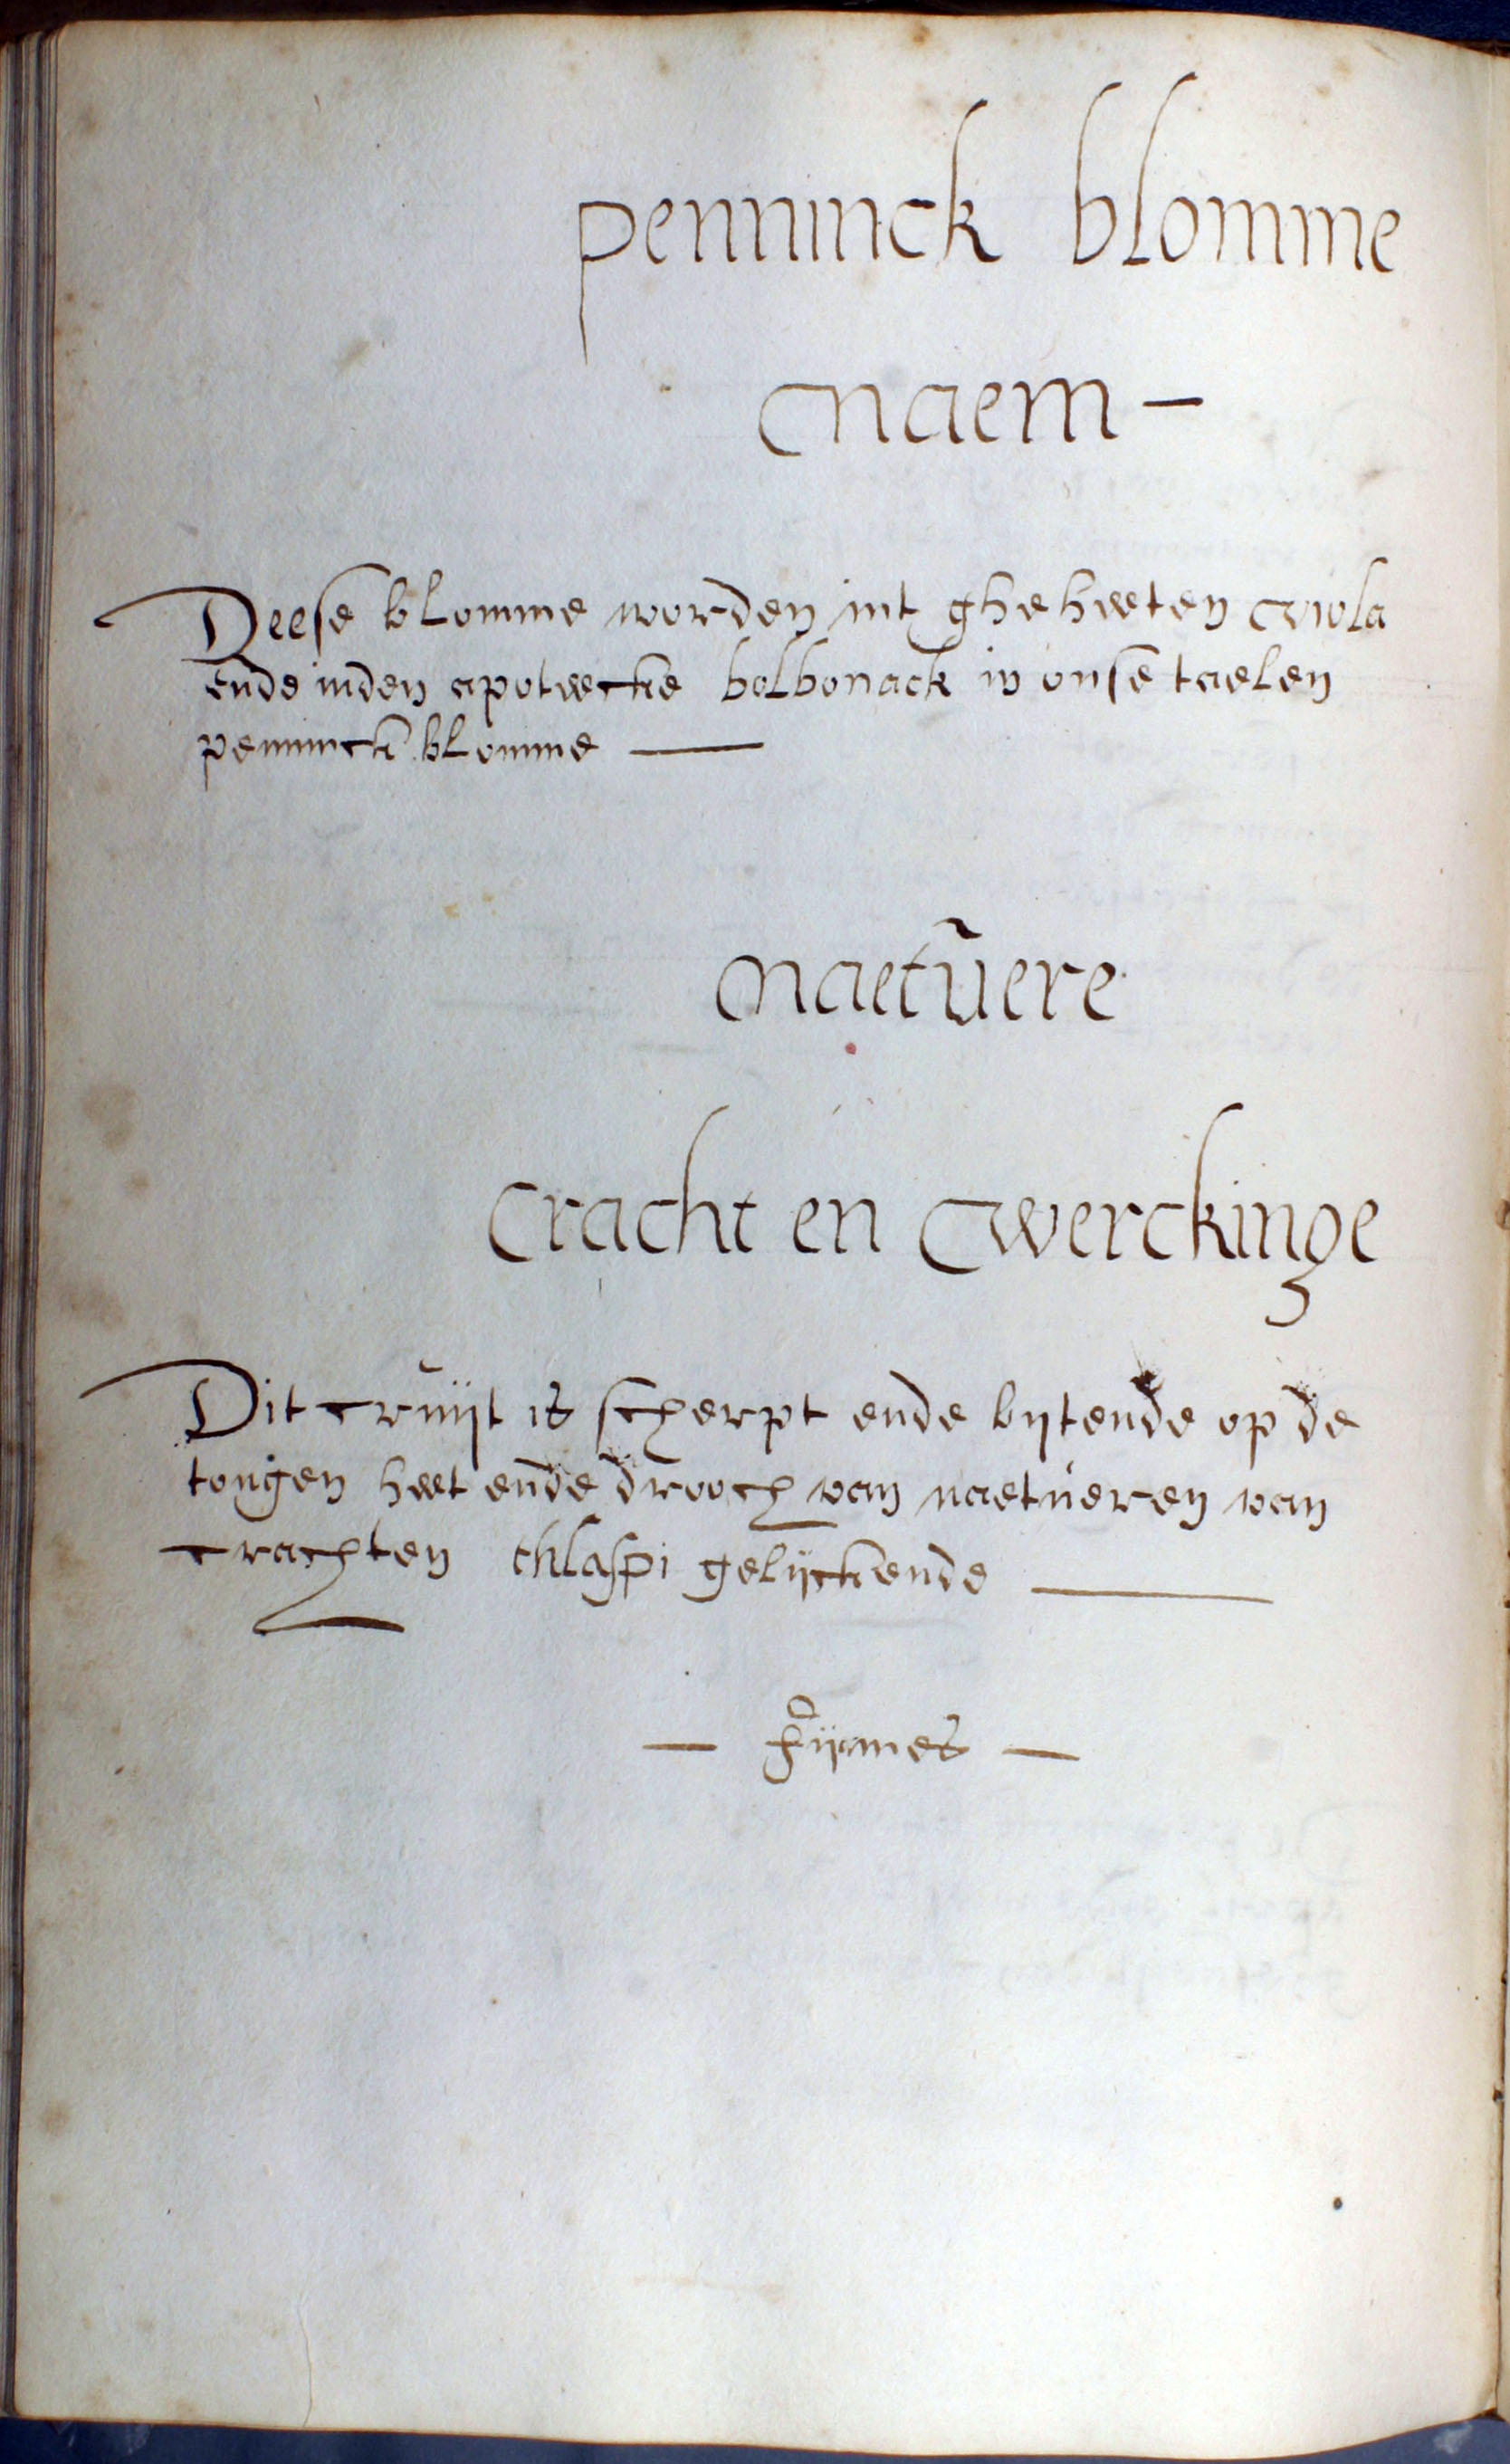 penninck blomme
naem —
Deese blomme worden int gheheeten viola
ende inden apoteecke bolbonack in onse taelen
penninck blomme —
naetuere
cracht en werckinge
Dit cruijt is scherpt ende bijtende op de
tongen heet ende drooch van naetueren van
crachten thlaspi gelijckende —